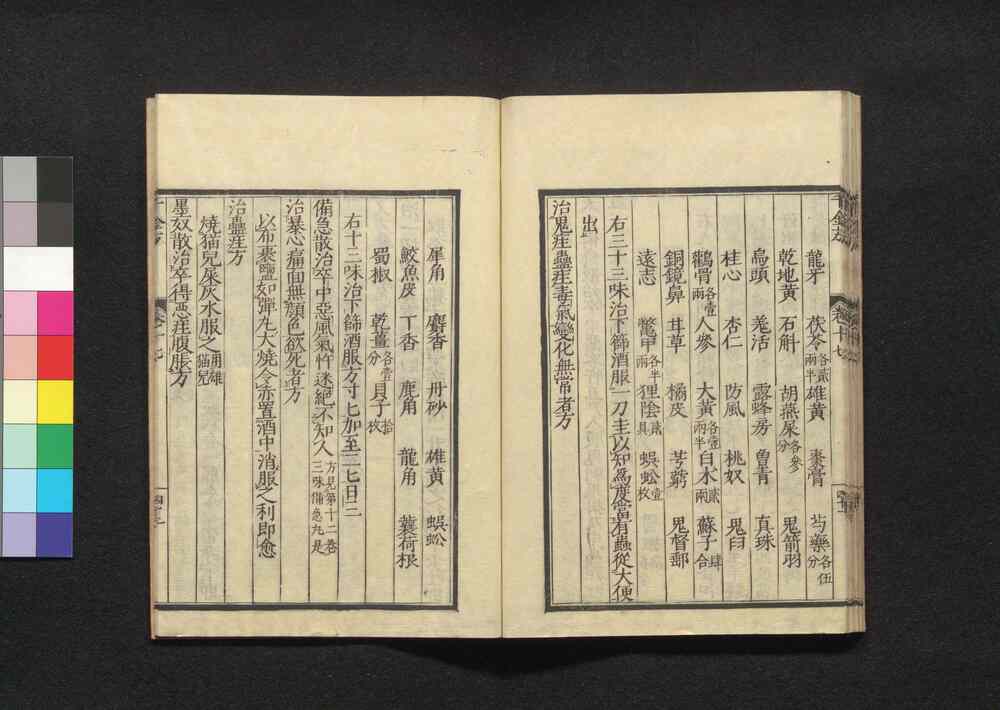 龍牙 茯苓各貳兩半 雄黃 棗膏 芍藥各伍分
乾地黃 石斛 胡燕屎各參分 鬼箭羽
烏頭 羗活 露蜂房 曾青 真珠
桂心 杏仁 防風 桃奴 鬼臼
鸛骨各壹兩 人參 大黃各壹兩半 白术貳兩 蘇子肆合
銅鏡鼻 茸草 橘皮 芎藭 鬼督郵
遠志 鱉甲各半兩 狸陰貳具 蜈蚣壹枚
右三十三味治下篩酒服一刀圭以知爲度當有蟲從大便
出
治鬼疰蠱疰毒氣變化無常者方
犀角 麝香 丹砂 雄黃 蜈蚣
鮫魚皮 丁香 鹿角 龍角 蘘荷根
蜀椒 乾薑各壹分 貝子拾枚
右十三味治下篩酒服方寸匕加至二七日三
備急散治卒中惡風氣忤迷絕不知人方見第十二卷三味備急丸是
治暴心痛面無顏色欲死者方
以布裹鹽如彈丸大燒令赤置酒中消服之利即愈
治蠱疰方
燒猫兒屎灰水服之用雄猫兒
墨奴散治卒得惡疰腹脹方
千金方
卷十七